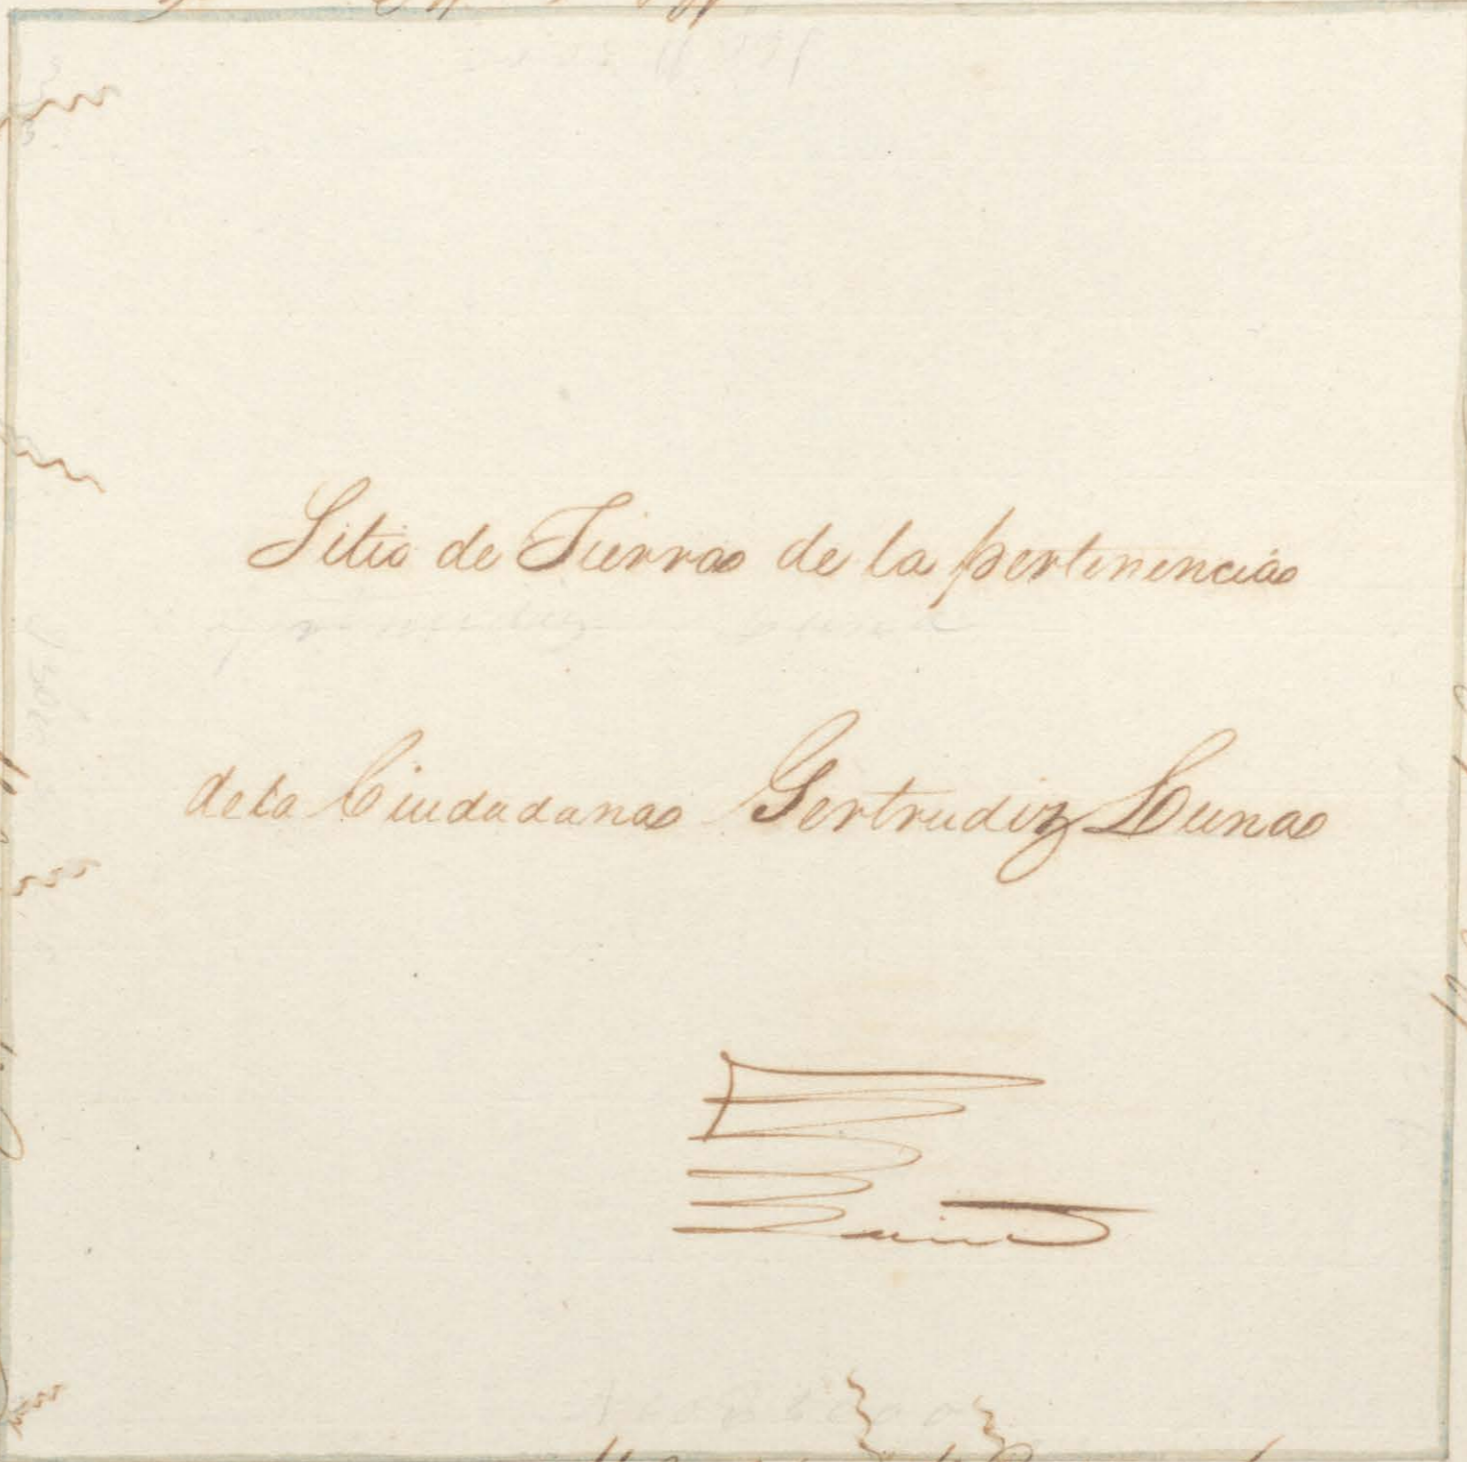 Sitio de Tierra de la pertenencia
de la Ciudadana Gertrudiz Luna